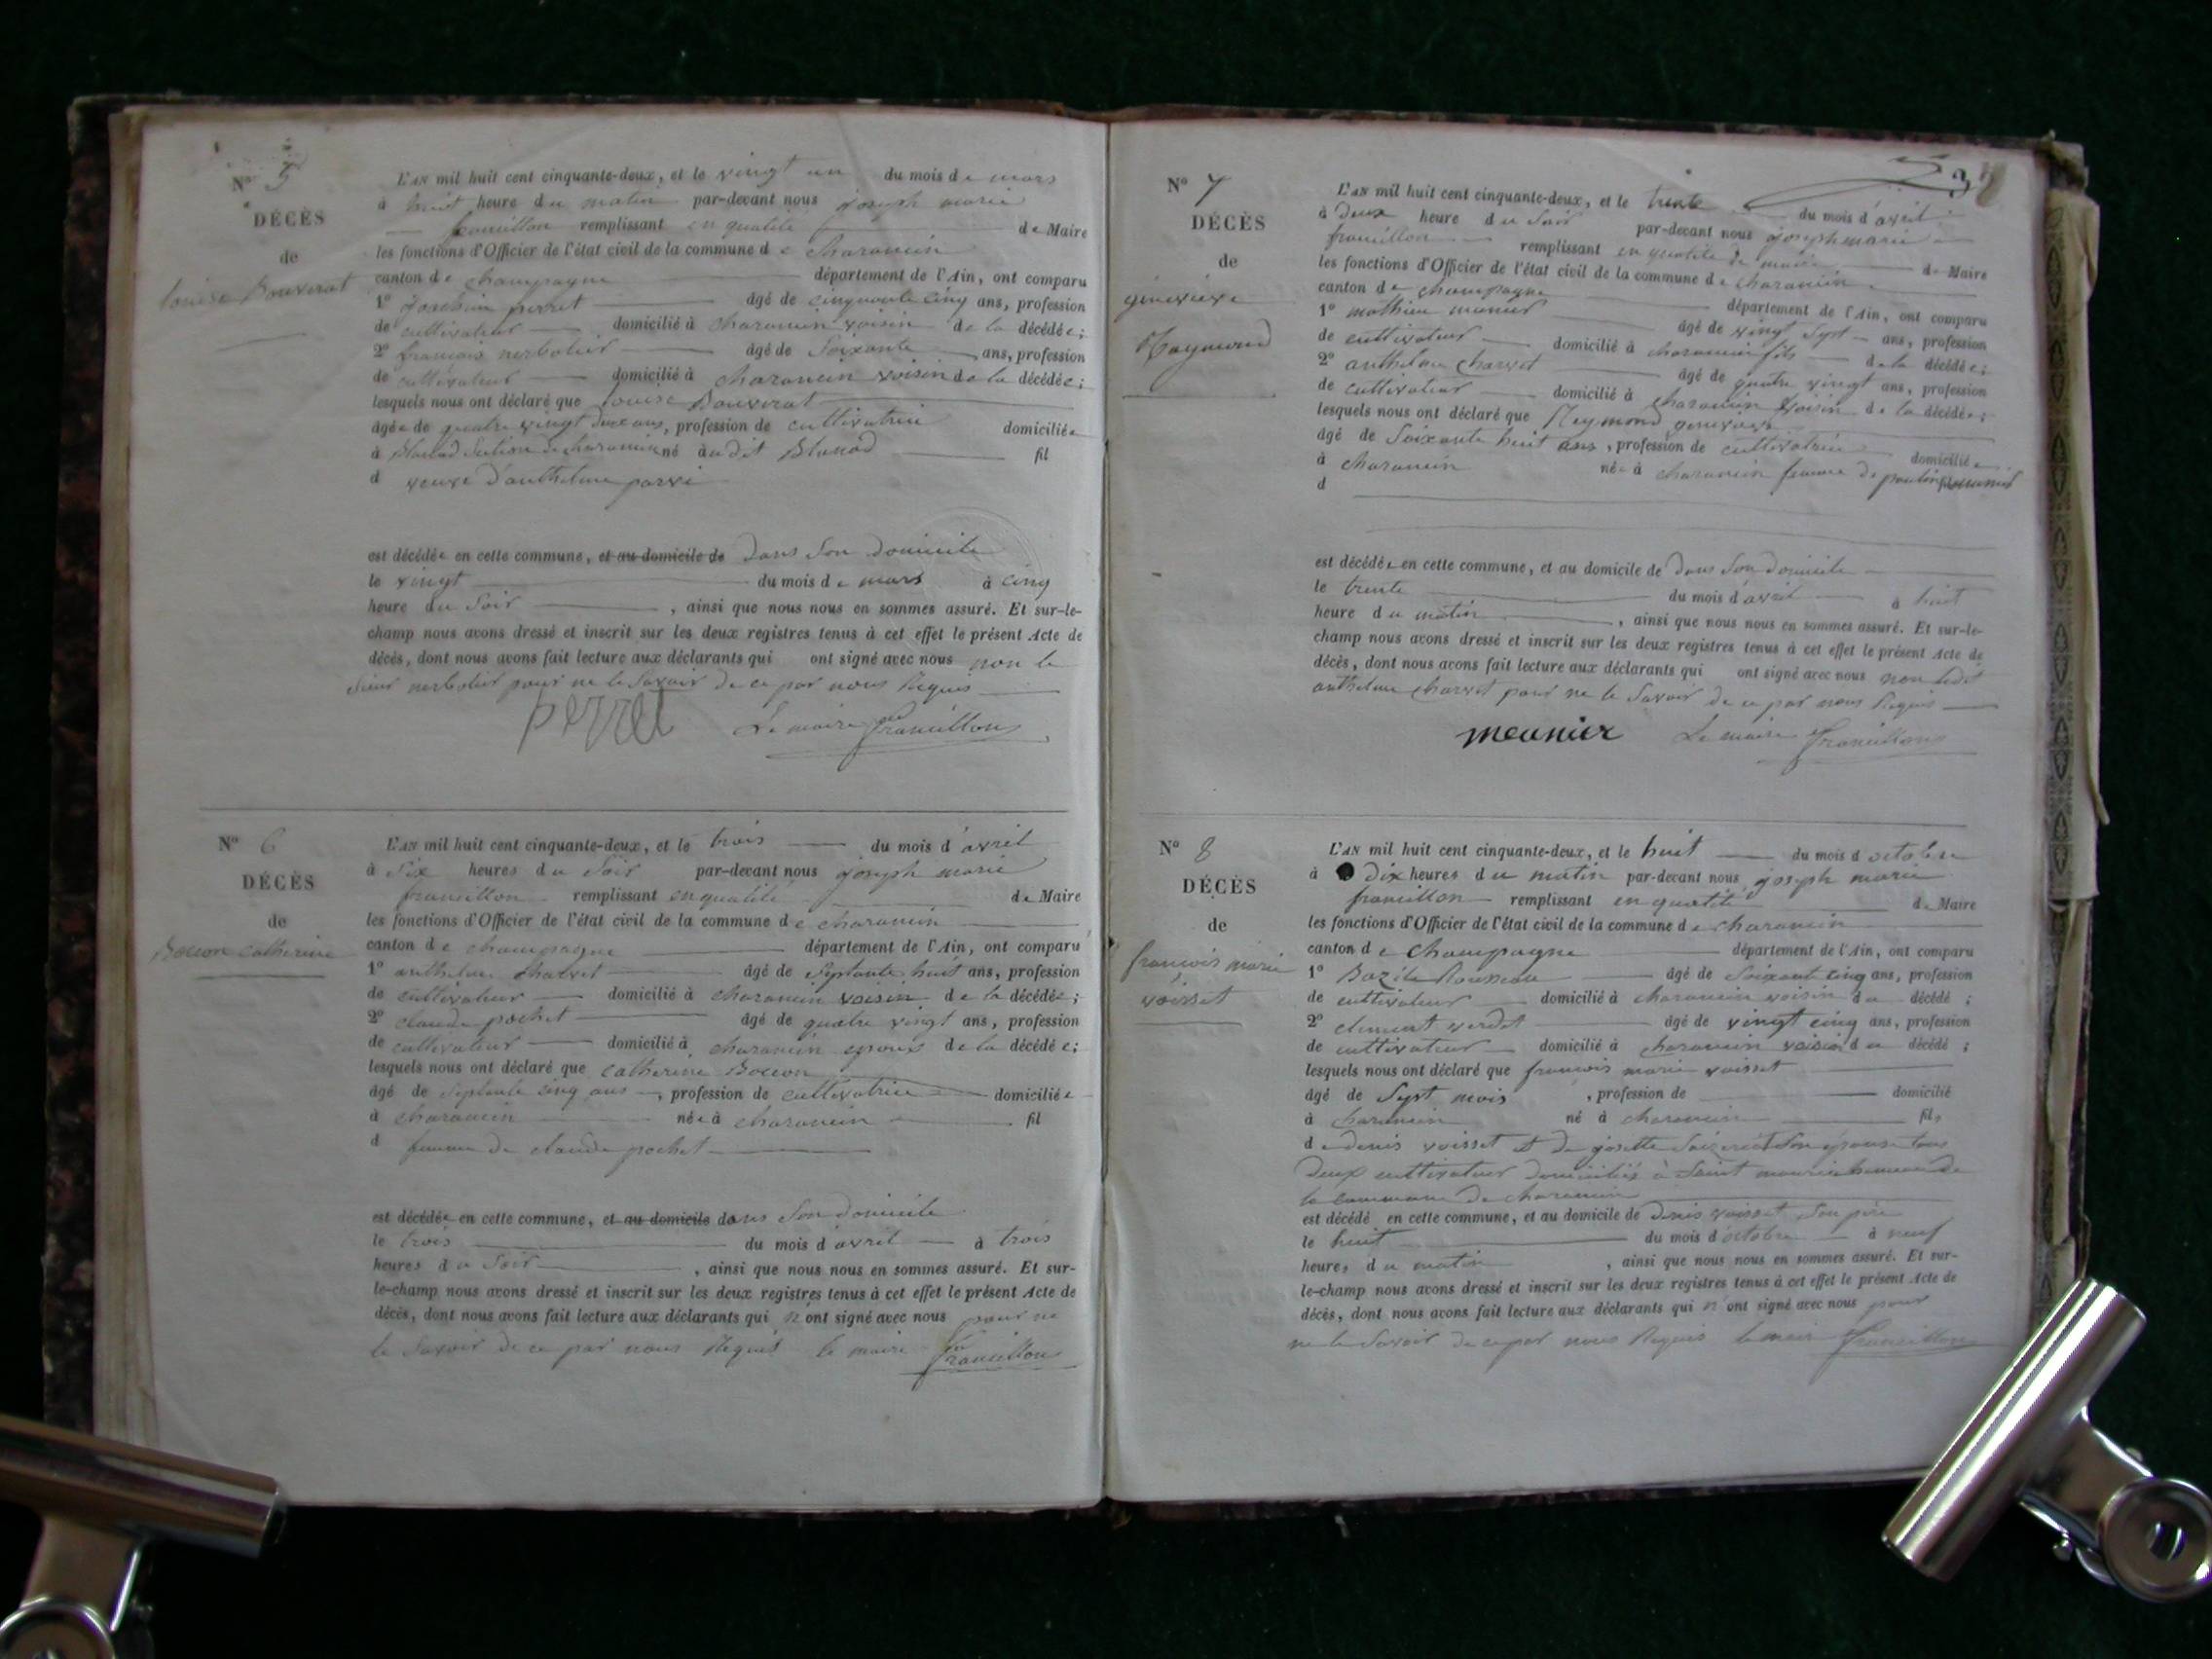 N° 5
DÉCÈS
de
louise Bouverat
L'AN mil huit cent cinquante-deux, et le vingt un du mois de mars
à huit heure du matin par-devant nous joseph marie
francillon remplissant en qualité de Maire
les fonctions d'Officier de l'état civil de la commune de charancin
canton de champagne département de l'Ain, ont comparu
1° perret âgé de cinquante cinq ans, profession
de cultivateur domicilié à charancin voisin de la décédée;
2° francois nerbolier âgé de Soixante ans, profession
de cultivateur domicilié à charancin voisin de la décédée;
lesquels nous ont déclaré que louise Bouverat
âgée de quatre vingt deux ans, profession de cultivatrice domiciliée
à Blanad Section de charancin né audit Blanad fil
d veuve d'anthelme parvi
est décédée en cette commune, et au domicile de dans Son domicile
le vingt du mois de mars à cinq
heure du Soir, ainsi que nous nous en sommes assuré. Et sur-le-
champ nous avons dressé et inscrit sur les deux registres tenus à cet effet le présent Acte de
décès, dont nous avons fait lecture aux déclarants qui ont signé avec nous non le
Sieur nerbolier pour ne le Savoir de ce par nous Requis
perret Le maire francillon
N° 6
DÉCÈS
de
Bocon catherine
L'AN mil huit cent cinquante-deux, et le trois du mois d'avril
à Six heures du Soir par-devant nous joseph marie
francillon remplissant en qualité de Maire
les fonctions d'Officier de l'état civil de la commune de charancin
canton de champagne département de l'Ain, ont comparu
1° anthelme charvet âgé de Septante huit ans, profession
de cultivateur domicilié à charancin voisin de la décédée;
2° claude pochet âgé de quatre vingt ans, profession
de cultivateur domicilié à charancin epoux de la décédée;
lesquels nous ont déclaré que catherine Bocon
âgé de Septante cinq ans, profession de cultivatrice domiciliée
à charancin née à charancin fil
d femme de claude pochet
est décédée en cette commune, et au domicile dans Son domicile
le trois du mois d'avril à trois
heures du Soir, ainsi que nous nous en sommes assuré. Et sur-
le-champ nous avons dressé et inscrit sur les deux registres tenus à cet effet le présent Acte de
décès, dont nous avons fait lecture aux déclarants qui n'ont signé avec nous pour ne
le Savoir de ce par nous Requis le maire francillon
3
N° 7
DÉCÈS
de
genevieve
Raymond
L'AN mil huit cent cinquante-deux, et le trente du mois d'avril
à deux heure du Soir par-devant nous joseph marie
francillon remplissant en qualité de maire de Maire
les fonctions d'Officier de l'état civil de la commune de charancin
canton de champagne département de l'Ain, ont comparu
1° mathieu munier âgé de vingt Sept ans, profession
de cultivateur domicilié à charancin fils de la décédée;
2° anthelme charvet âgé de quatre vingt ans, profession
de cultivateur domicilié à charancin voisin de la décédée;
lesquels nous ont déclaré que Reymond genevieve
âgé de Soixante huit ans, profession de cultivatrice domiciliée
à charancin née à charancin femme de
d
est décédée en cette commune, et au domicile de dans Son domicile
le trente du mois d'avril à huit
heure du matin, ainsi que nous nous en sommes assuré. Et sur-le-
champ nous avons dressé et inscrit sur les deux registres tenus à cet effet le présent Acte de
décès, dont nous avons fait lecture aux déclarants qui ont signé avec nous non ledit
anthelme charvet pour ne le Savoir de ce par nous Requis
meunier Le maire francillon
N° 8
DÉCÈS
de
francois marie
voisset
L'AN mil huit cent cinquante-deux, et le huit du mois d octobre
à Dix heures du matin par-devant nous joseph marie
francillon remplissant en qualité de Maire
les fonctions d'Officier de l'état civil de la commune de charancin
canton de champagne département de l'Ain, ont comparu
1° Bazile Rousseau âgé de Soixant cinq ans, profession
de cultivateur domicilié à charancin voisin du décédé;
2° clement verdet âgé de vingt cinq ans, profession
de cultivateur domicilié à charancin voisin du décédé;
lesquels nous ont déclaré que francois marie voisset
âgé de Sept mois, profession de domicilié
à charancin né à charancin fils
de denis voisset et de josette Son épouse tous
deux cultivateur domiciliés à Saint maurice hameau de
la commune de charancin
est décédé en cette commune, et au domicile de denis voisset Son père
le huit du mois d'octobre à neuf
heures du matin, ainsi que nous nous en sommes assuré. Et sur-
le-champ nous avons dressé et inscrit sur les deux registres tenus à cet effet le présent Acte de
décès, dont nous avons fait lecture aux déclarants qui n'ont signé avec nous pour
ne le Savoir de ce par nous Requis le maire francillon